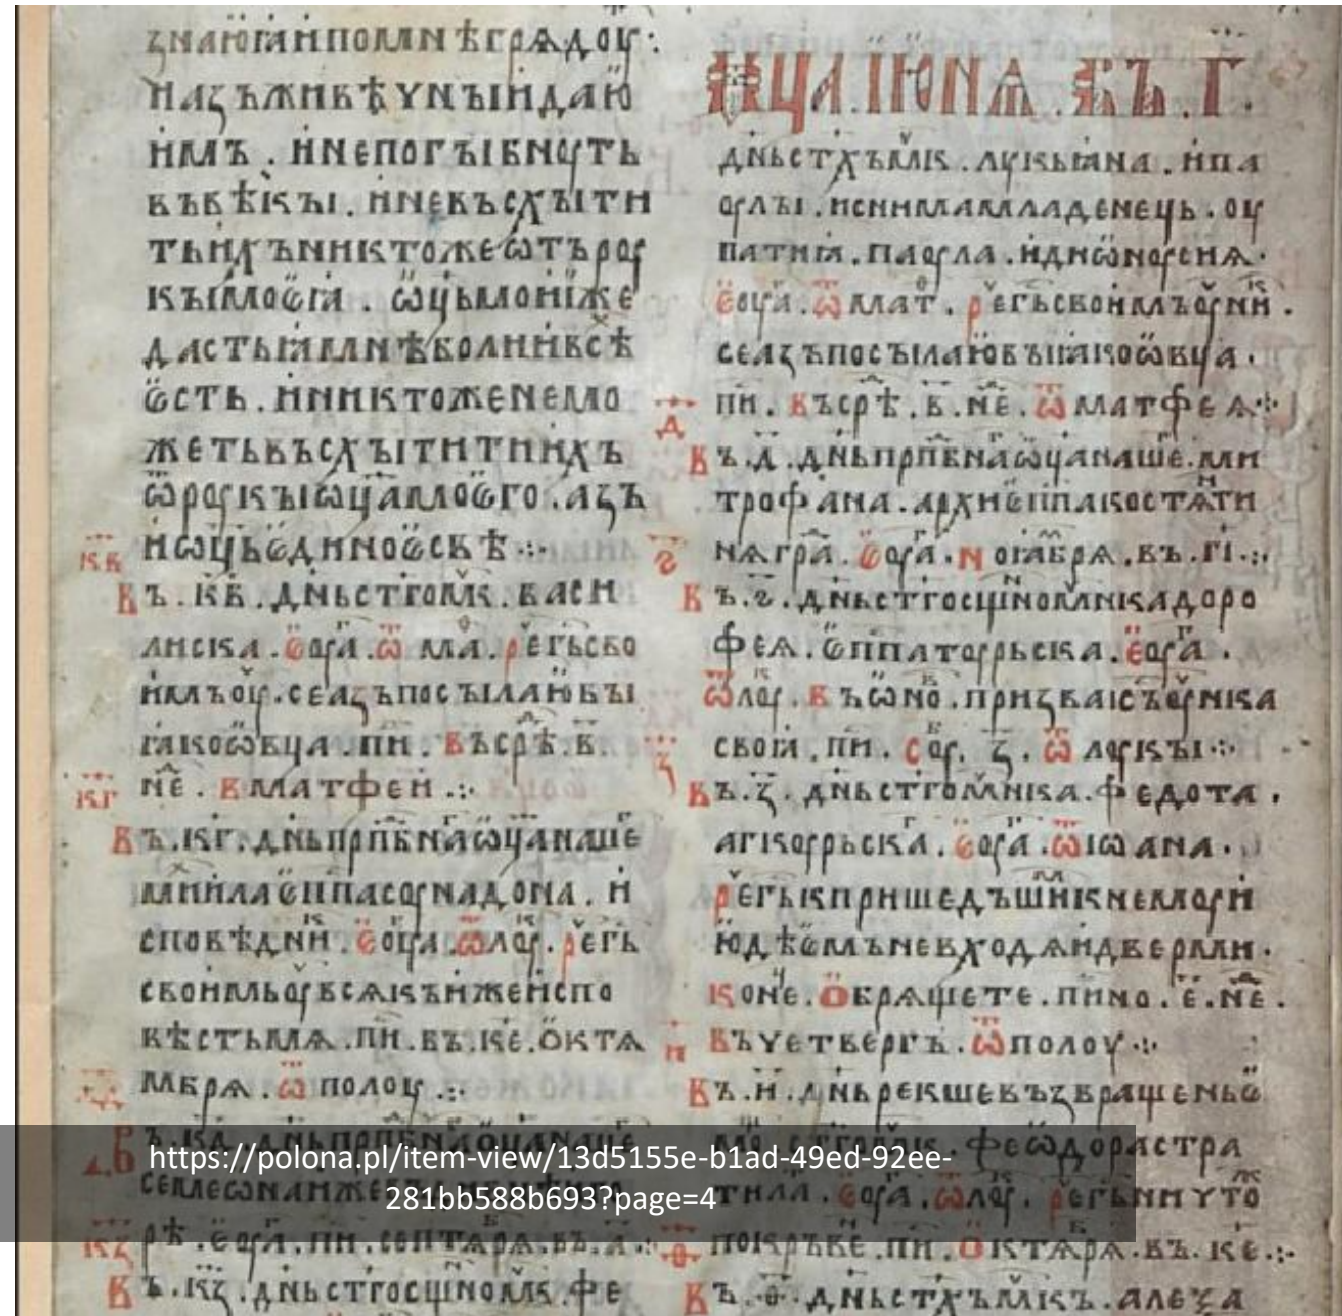 знаюꙗ и по мнѣ грядоу:
и азъ животъ вѣчныи даю
имъ . и не погыбноуть
въ вѣкы . и не въсхыти
ть ихъ никтоже ѿтъ роу
кы моѥꙗ . ѡц҃ь мои иже
дасть ꙗ мнѣ болии всѣ
ѥсть . и никтоже не мо
жеть въсхытити ихъ
ѿ роукы ѡц҃а моѥго . азъ
и ѡц҃ь ѥдино ѥсвѣ ⁘
к҃в
Въ . к҃в . дн҃ь ст҃го мк҃ . васи
лиска . ѥоуа҃г . ѿ ма҃ . рече г҃ь сво
имъ оу҃ . се азъ посылаю вы
ꙗко ѡвца . пи . въ срѣ҃ . в҃ .
к҃г
не҃ . в матфеи ⁘
Въ . к҃г . дн҃ь прп҃бна҃г ѡц҃а наше҃
михаила ѥп҃па соунадона . и
сповѣдни҃к . ѥоуа҃г . ѿ лоу҃к . рече г҃ь
своимъ оу҃ всякъ иже испо
вѣсть мя . пи . въ . к҃е . октя
мбря . ѿ полоу ⁘
к҃з
Въ . к҃з . дн҃ь ст҃го сщ҃номк҃ . фе
М҃ЦА . ИЮНѦ . ВЪ . Г҃ .
дн҃ь ст҃хъ мк҃ . лоукьꙗна . и па
оулы . и с ними младенець . оу
патиꙗ . паоула . и диѡноусия .
ѥоуа҃г . ѿ мат҃ . рече г҃ь своимъ оу҃чни҃к .
се азъ посылаю вы ꙗко ѡвца .
д҃
пи . въ срѣ҃ . в҃ . не҃ . ѿ матфея ⁘
Въ . д҃ . дн҃ь прп҃бна҃г ѡц҃а наше҃ . ми
трофана . архиѥп҃па костяти
ѕ҃
ня гра҃ . ѥоуа҃г . ноꙗбря . въ . г҃і ⁘
Въ . ѕ҃ . дн҃ь ст҃го сщ҃номч҃нка доро
фея . ѥп҃па тоурьска . ѥоуа҃г .
ѿ лоу҃к . въ ѡно҃ . призва іс҃ъ оу҃ника
з҃
своꙗ . пи . соу҃б . з҃ . ѿ лоукы ⁘
Въ . з҃ . дн҃ь ст҃го мч҃ника . федота .
агкоурьска . ѥоуа҃г . ѿ іѡана .
рече г҃ь к пришедъши҃м к немоу и
юдѣѥмъ не входяи дверьми .
коне҃ц . обрящете . пи но . е҃ . не҃ .
и҃
въ четвергъ . ѿ полоу ⁘
Въ . и҃ . дн҃ь рекше възвращеньѥ
феѡдора стра
тила . ѥоуа҃г . ѿ лоу҃к . рече г҃ь ничто҃ж
ѳ҃
покръве҃н . пи . октября . въ . к҃е ⁘
Въ . ѳ҃ . дн҃ь ст҃хъ мк҃ъ . алеѯа
https://polona.pl/item-view/13d5155e-b1ad-49ed-92ee-
281bb588b693?page=4